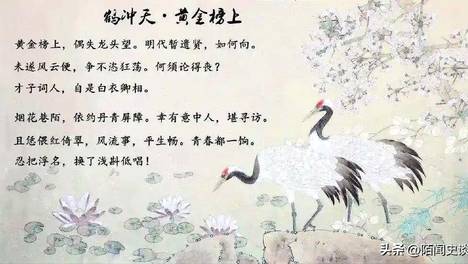 鹤冲天·黄金榜上
黄金榜上，偶失龙头望。明代暂遗贤，如何向。
未遂风云便，争不恣狂荡。何须论得丧？
才子词人，自是白衣卿相。
烟花巷陌，依约丹青屏障。幸有意中人，堪寻访。
且恁偎红倚翠，风流事，平生畅。青春都一饷。
忍把浮名，换了浅斟低唱！
头条@陌闻史谈